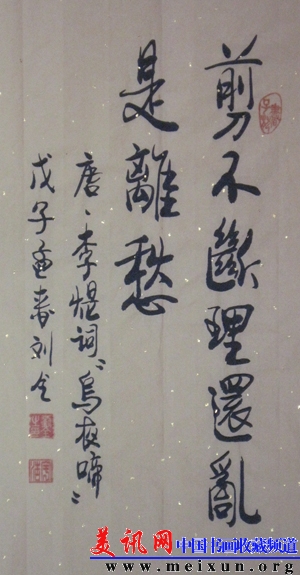 剪不斷理還亂
是離愁
唐、李煜詞《烏夜啼》
戊子
春刘
美讯网 中国书画收藏频道
www.meixun.org